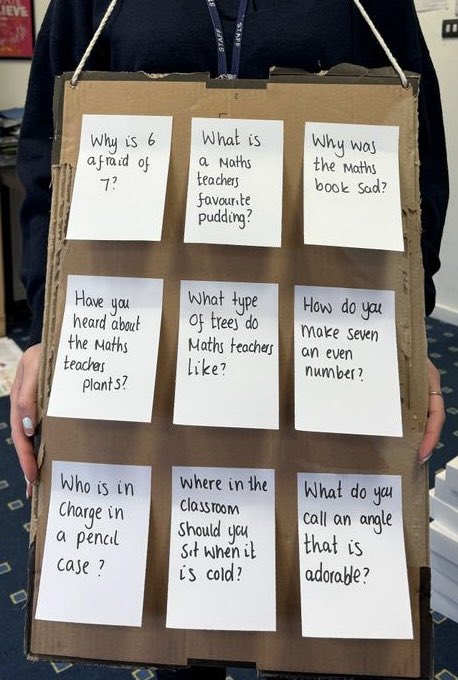 LIEVE
STAFF
STAFF
Why is 6
afraid of
7?
What is
a Maths
teachers
favourite
pudding?
Why was
the Maths
book sad?
Have you
heard about
the Maths
teachers
plants?
What type
of trees do
Maths teachers
like?
How do you
make seven
an even
number?
Who is in
charge in
a pencil
case?
Where in the
classroom
should you
sit when it
is cold?
What do you
call an angle
that is
adorable?